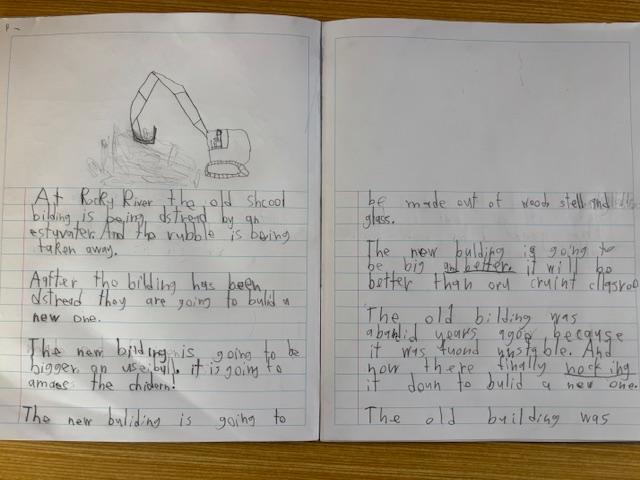 At Rocky River the old shcool
bilding is being dstread by an
estyvater. And the rubble is being
taken away.
Aafter tho bilding has been
dstread they are going to bulid a
new one.
The new bilding is going to be
bigger an useibul. it is going to
amaes the chidern!
The new buliding is going to
be made out of wood stell and
glass.
The new bulding is going to
be big an better. it will be
better than oru craint clasroo
The old bilding was
aband years agoe because
it was fuond unstable. And
now there finally
it doun to bulid a new one.
The old building was